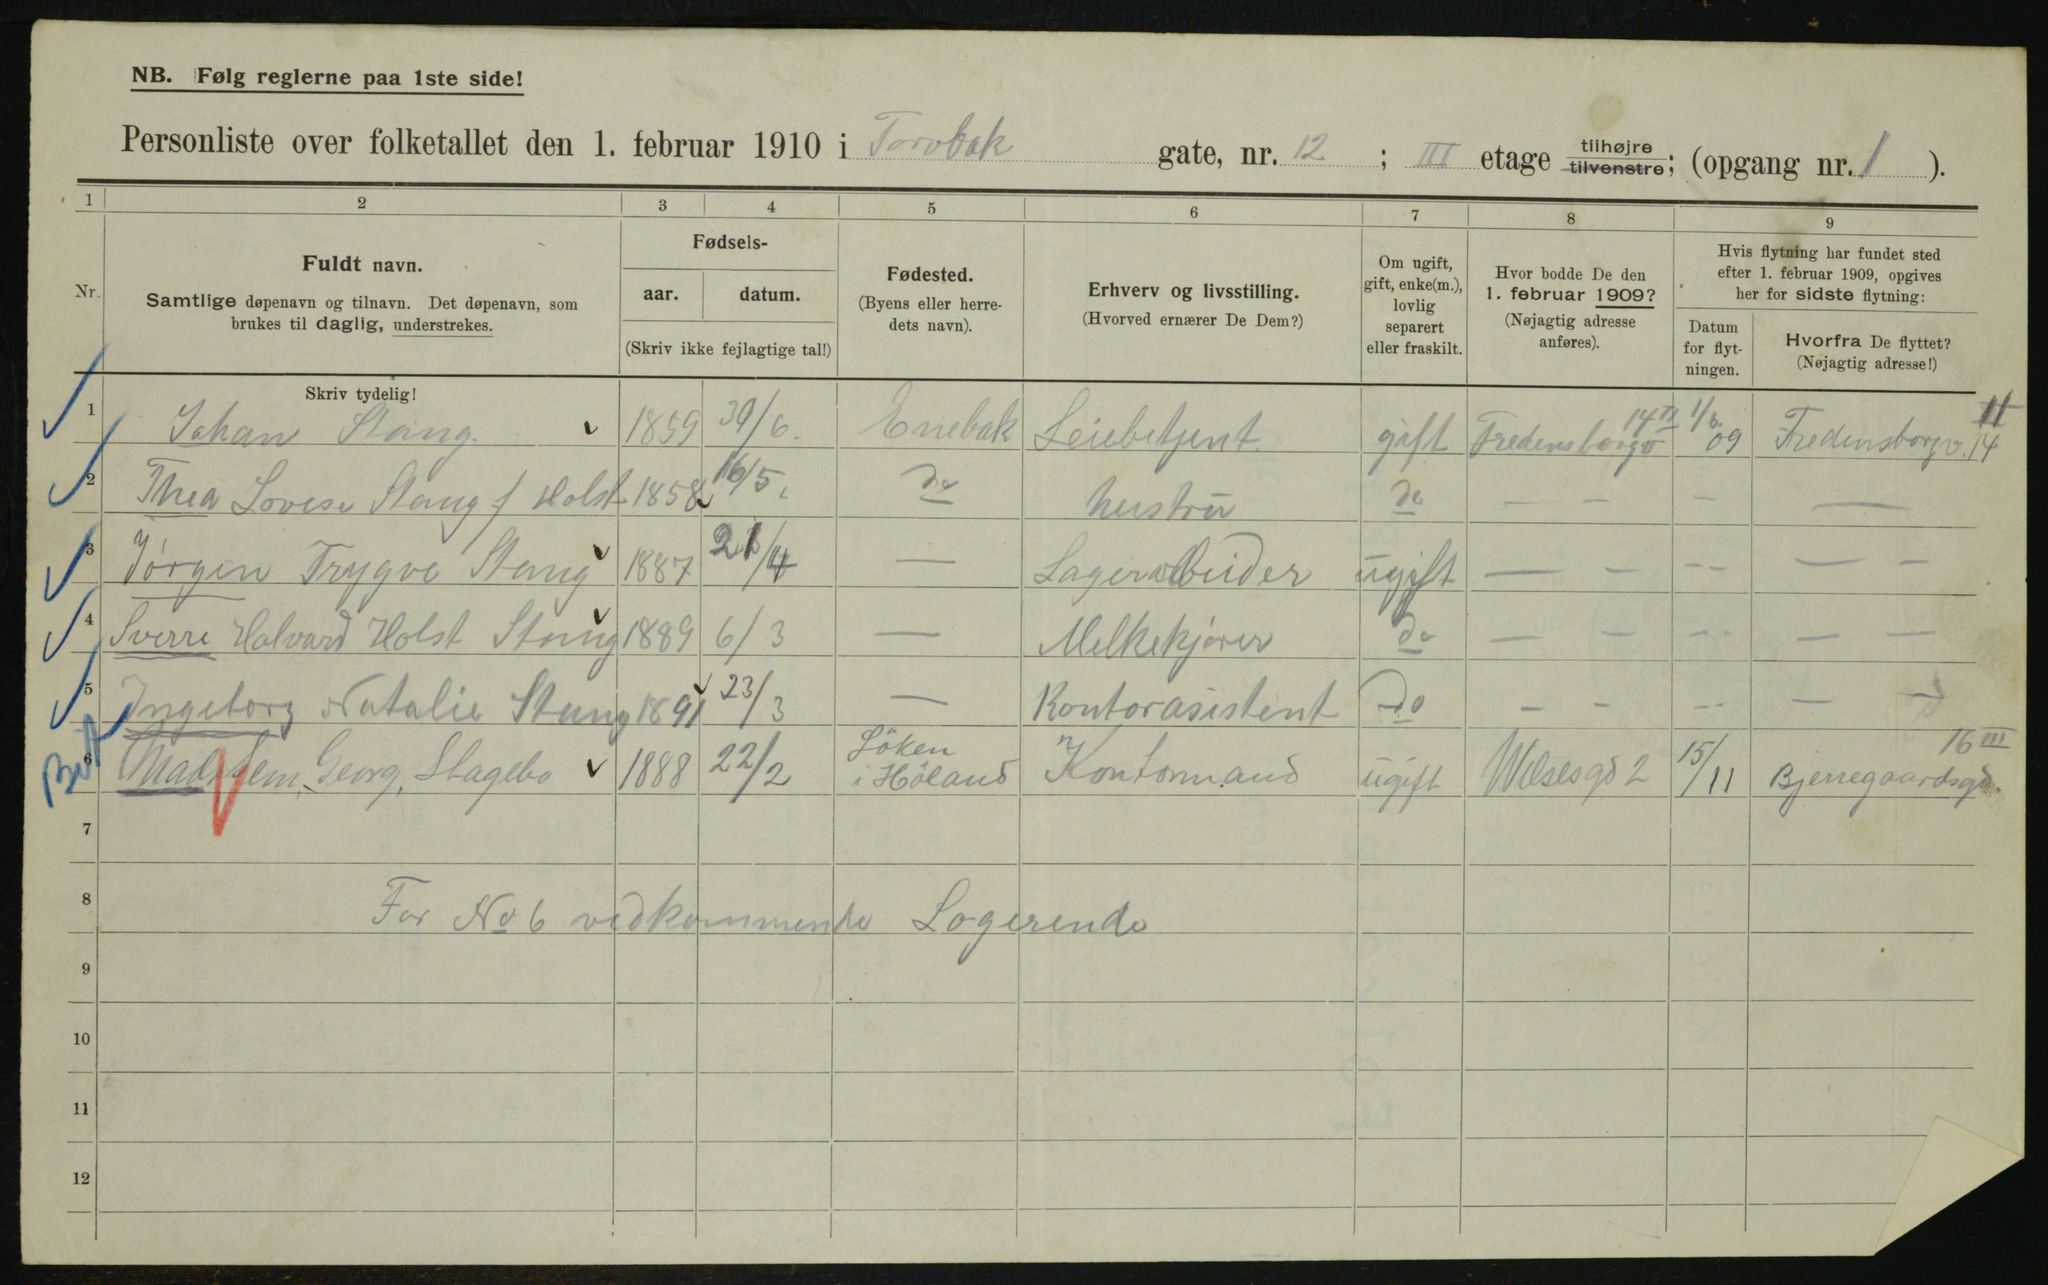 NB. Følg reglerne paa 1ste side!
Personliste over folketallet den 1. februar 1910 i Torvbak gate, nr. 12 ; III etage tilhøjre tilvenstre; (opgang nr. 1 ).
1 2 3 4 5 6 7 8 9
Nr.
Fuldt navn.
Samtlige døpenavn og tilnavn. Det døpenavn, som
brukes til daglig, understrekes.
Skriv tydelig!
Fødsels-
aar. datum.
(Skriv ikke fejlagtige tal!)
Fødested.
(Byens eller herre-
dets navn).
Erhverv og livsstilling.
(Hvorved ernærer De Dem?)
Om ugift,
gift, enke(m.),
lovlig
separert
eller fraskilt.
Hvor bodde De den
1. februar 1909?
(Nøjagtig adresse
anføres).
Hvis flytning har fundet sted
efter 1. februar 1909, opgives
her for sidste flytning:
Datum
for flyt-
ningen.
Hvorfra De flyttet?
(Nøjagtig adresse!)
1 Johan Stang. 1859 30/6. Enebak Leiebetjent gift Fredensborgv 14 II 1/3 09 Fredensborgv. 14 II
2 Thea Lovise Stang f Holst 1858 16/5. do hustru do — — — —
3 Jørgen Trygve Stang 1887 21/4 — Lagerarbeider ugift — — -- — —
4 Sverre Halvard Holst Stang 1889 6/3 — Melkekjører do — — -- — —
5 Ingeborg Natalie Stang 1891 23/3 — Kontorasistent do — - - -- — —
Bet
6 Georg, Stagebo 1888 22/2 Löken i Höland Kontormand ugift Wilsesgd 2 15/11 Bjerregaardsgd. 16 III
7
8 For No 6 vedkommende Logerende
9
10
11
12